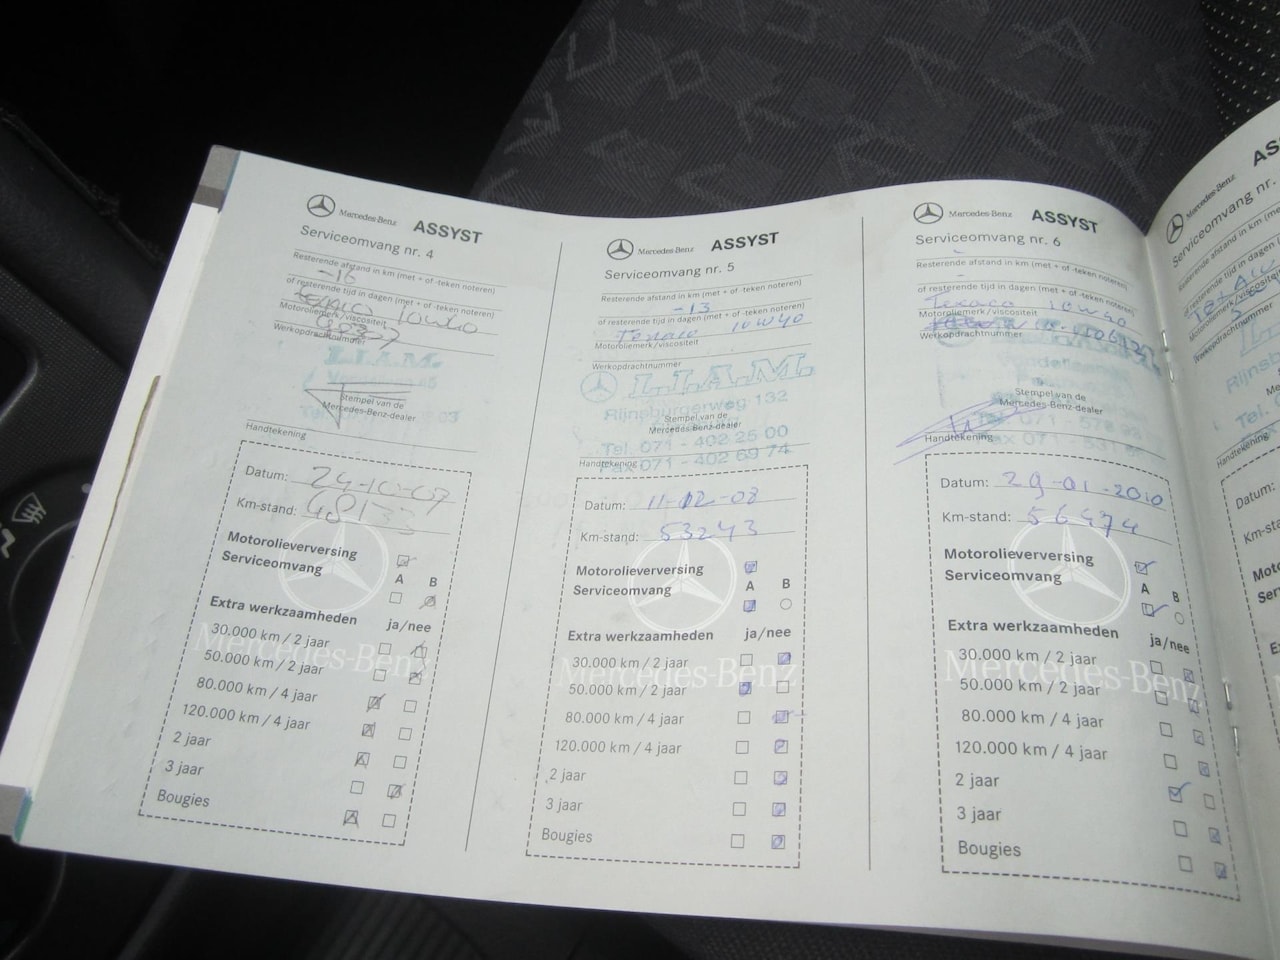 Mercedes-Benz ASSYST
Serviceomvang nr. 4
Resterende afstand in km (met + of -teken noteren)
-16
of resterende tijd in dagen (met + of -teken noteren)
Texaco 10W40
Motoroliemerk/viscositeit
Werkopdrachtnummer
L.I.A.M.
Stempel van de
Mercedes-Benz-dealer
Handtekening
Datum: 24-10-07
Km-stand: 48133
Motorolieverversing
Serviceomvang A B
Extra werkzaamheden ja/nee
30.000 km / 2 jaar
50.000 km / 2 jaar
80.000 km / 4 jaar
120.000 km / 4 jaar
2 jaar
3 jaar
Bougies
Mercedes-Benz
Mercedes-Benz ASSYST
Serviceomvang nr. 5
Resterende afstand in km (met + of -teken noteren)
-13
of resterende tijd in dagen (met + of -teken noteren)
Texaco 10W40
Motoroliemerk/viscositeit
Werkopdrachtnummer
L.I.A.M.
Rijnsburgerweg 132
Stempel van de
Mercedes-Benz-dealer
Tel. 071 - 402 25 00
Handtekening
Fax 071 - 402 69 74
Datum: 11-02-08
Km-stand: 53243
Motorolieverversing
Serviceomvang A B
Extra werkzaamheden ja/nee
30.000 km / 2 jaar
50.000 km / 2 jaar
80.000 km / 4 jaar
120.000 km / 4 jaar
2 jaar
3 jaar
Bougies
Mercedes-Benz
Mercedes-Benz ASSYST
Serviceomvang nr. 6
Resterende afstand in km (met + of -teken noteren)
-
of resterende tijd in dagen (met + of -teken noteren)
Texaco 10W40
Motoroliemerk/viscositeit
Werkopdrachtnummer
Stempel van de
Mercedes-Benz-dealer
Handtekening
Datum: 29-01-2010
Km-stand: 56474
Motorolieverversing
Serviceomvang A B
Extra werkzaamheden ja/nee
30.000 km / 2 jaar
50.000 km / 2 jaar
80.000 km / 4 jaar
120.000 km / 4 jaar
2 jaar
3 jaar
Bougies
Mercedes-Benz
Mercedes-Benz
Serviceomvang nr.
Resterende afstand in km
of resterende tijd in dagen
Motoroliemerk/viscositeit
Werkopdrachtnummer
Rijnsb
Tel.
Handtekening
Datum: